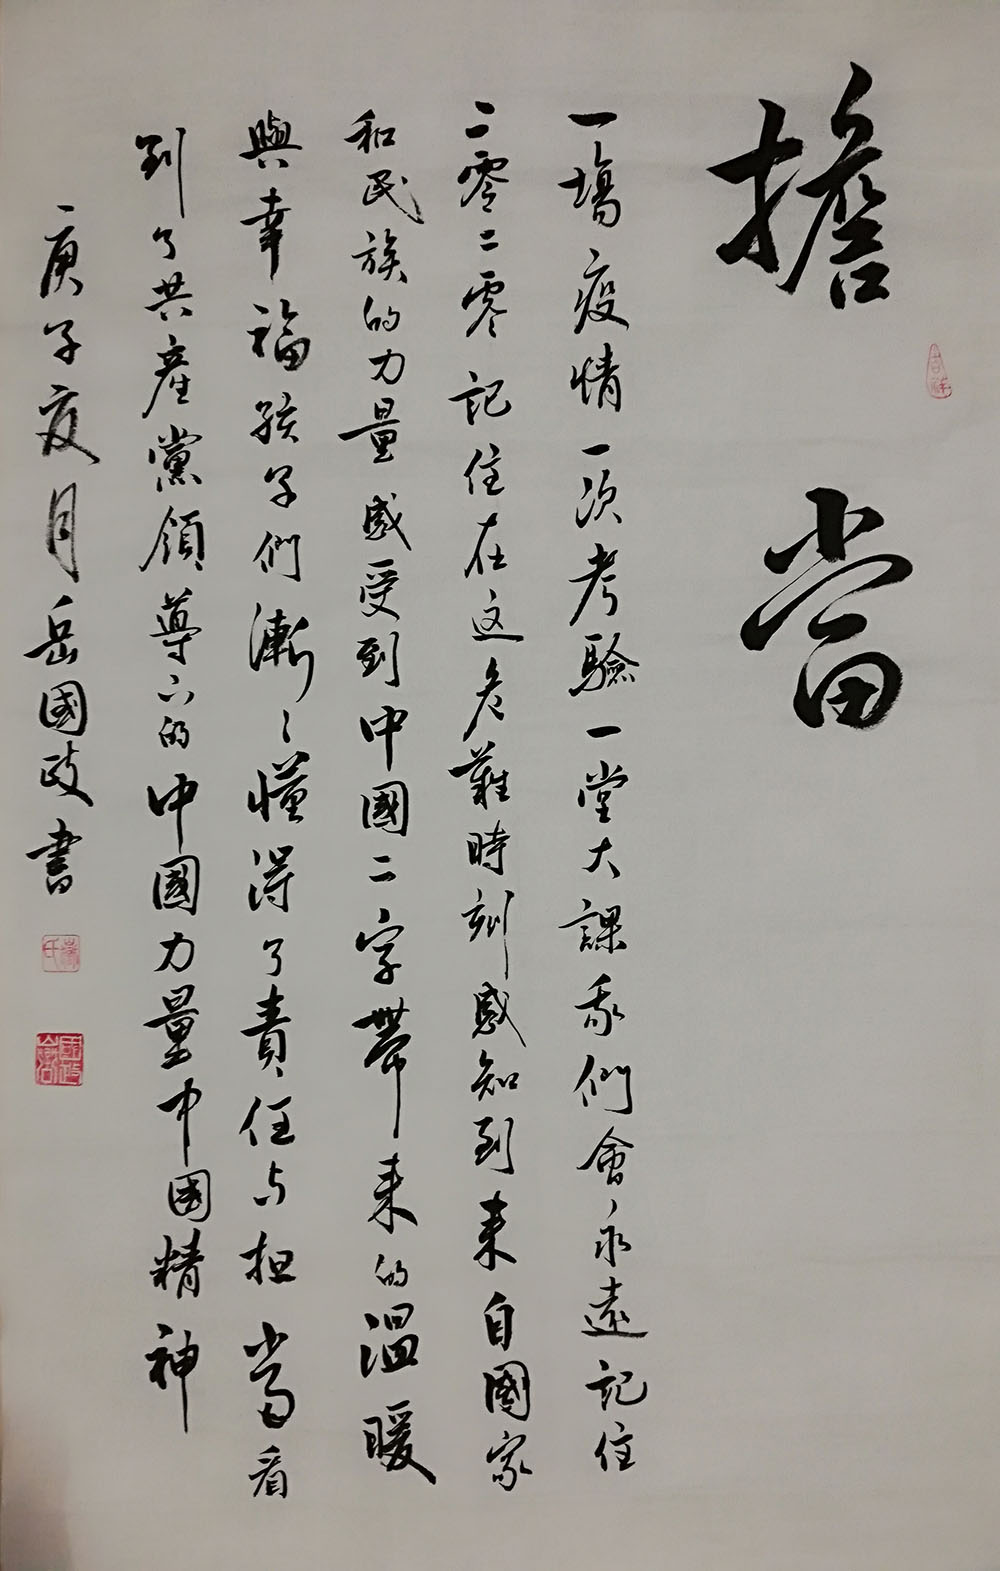 擔當
一場疫情一次考驗一堂大課我們會永遠記住
二零二零記住在这危難時刻感知到来自國家
和民族的力量感受到中國二字帶来的温暖
與幸福孩子們漸〻懂得了責任与担當看
到了共產黨領導下的中國力量中國精神
庚子夏月岳國政書
吉祥